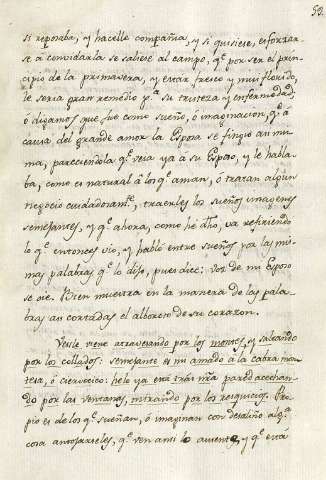 53.
si reposaba, y hacelle compañia, y si quisiese, esforzar-
se à convidarla se saliese al campo, q.e por ser el prin-
cipio de la primavera, y estar fresco y mui florido,
le seria gran remedio p.a su tristeza y enfermedad:
ó digamos que fue como sueño, ó imaginacion, q.e à
causa del grande amor la Esposa se fingio asi mis-
ma, pareciendola q.e veia ya à su Esposo, y le habla-
ba, como es natural à los q.e aman, ó tratan algun
negocio cuidadosam.te, traerles los sueños imagenes
semejantes, y q.e ahora, como he dho, va refiriendo
lo q.e entonces vio, y habló entre sueños por las mis-
mas palabras q.e lo dijo, pues dice: Voz de mi Esposo
se oie. Bien muestra en la manera de las pala-
bras an cortadas el alboroso de su corazon.
Vesle viene atravesando por los montes, y saltando
por los collados: semejante es mi amado à la cabra mon-
tesa, ó ciervecico: helo ya está trás nra pared acechan-
do por las ventanas, mirando por los resquicios. Pro-
pio es de los q.e sueñan, ó imaginan con desatino alg.a
cosa antojarseles, q.e ven ansi lo ausente, y q.e está